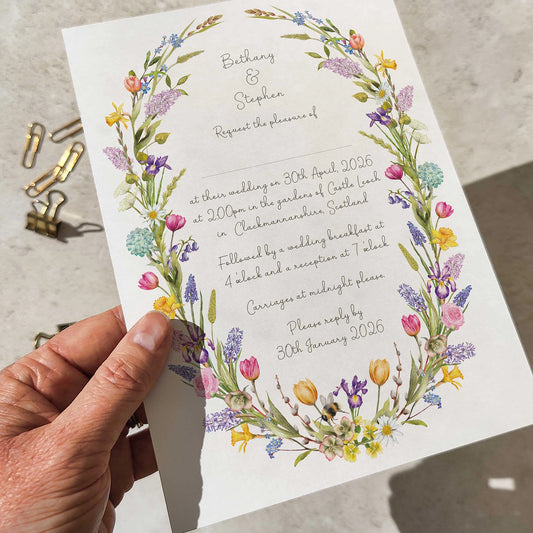 Bethany
&
Stephen
Request the pleasure of
at their wedding on 30th April, 2026
at 2.00pm in the gardens of Castle Leock
in Clackmannanshire, Scotland
Followed by a wedding breakfast at
4 o'clock and a reception at 7 o'clock
Carriages at midnight please.
Please reply by
30th January 2026